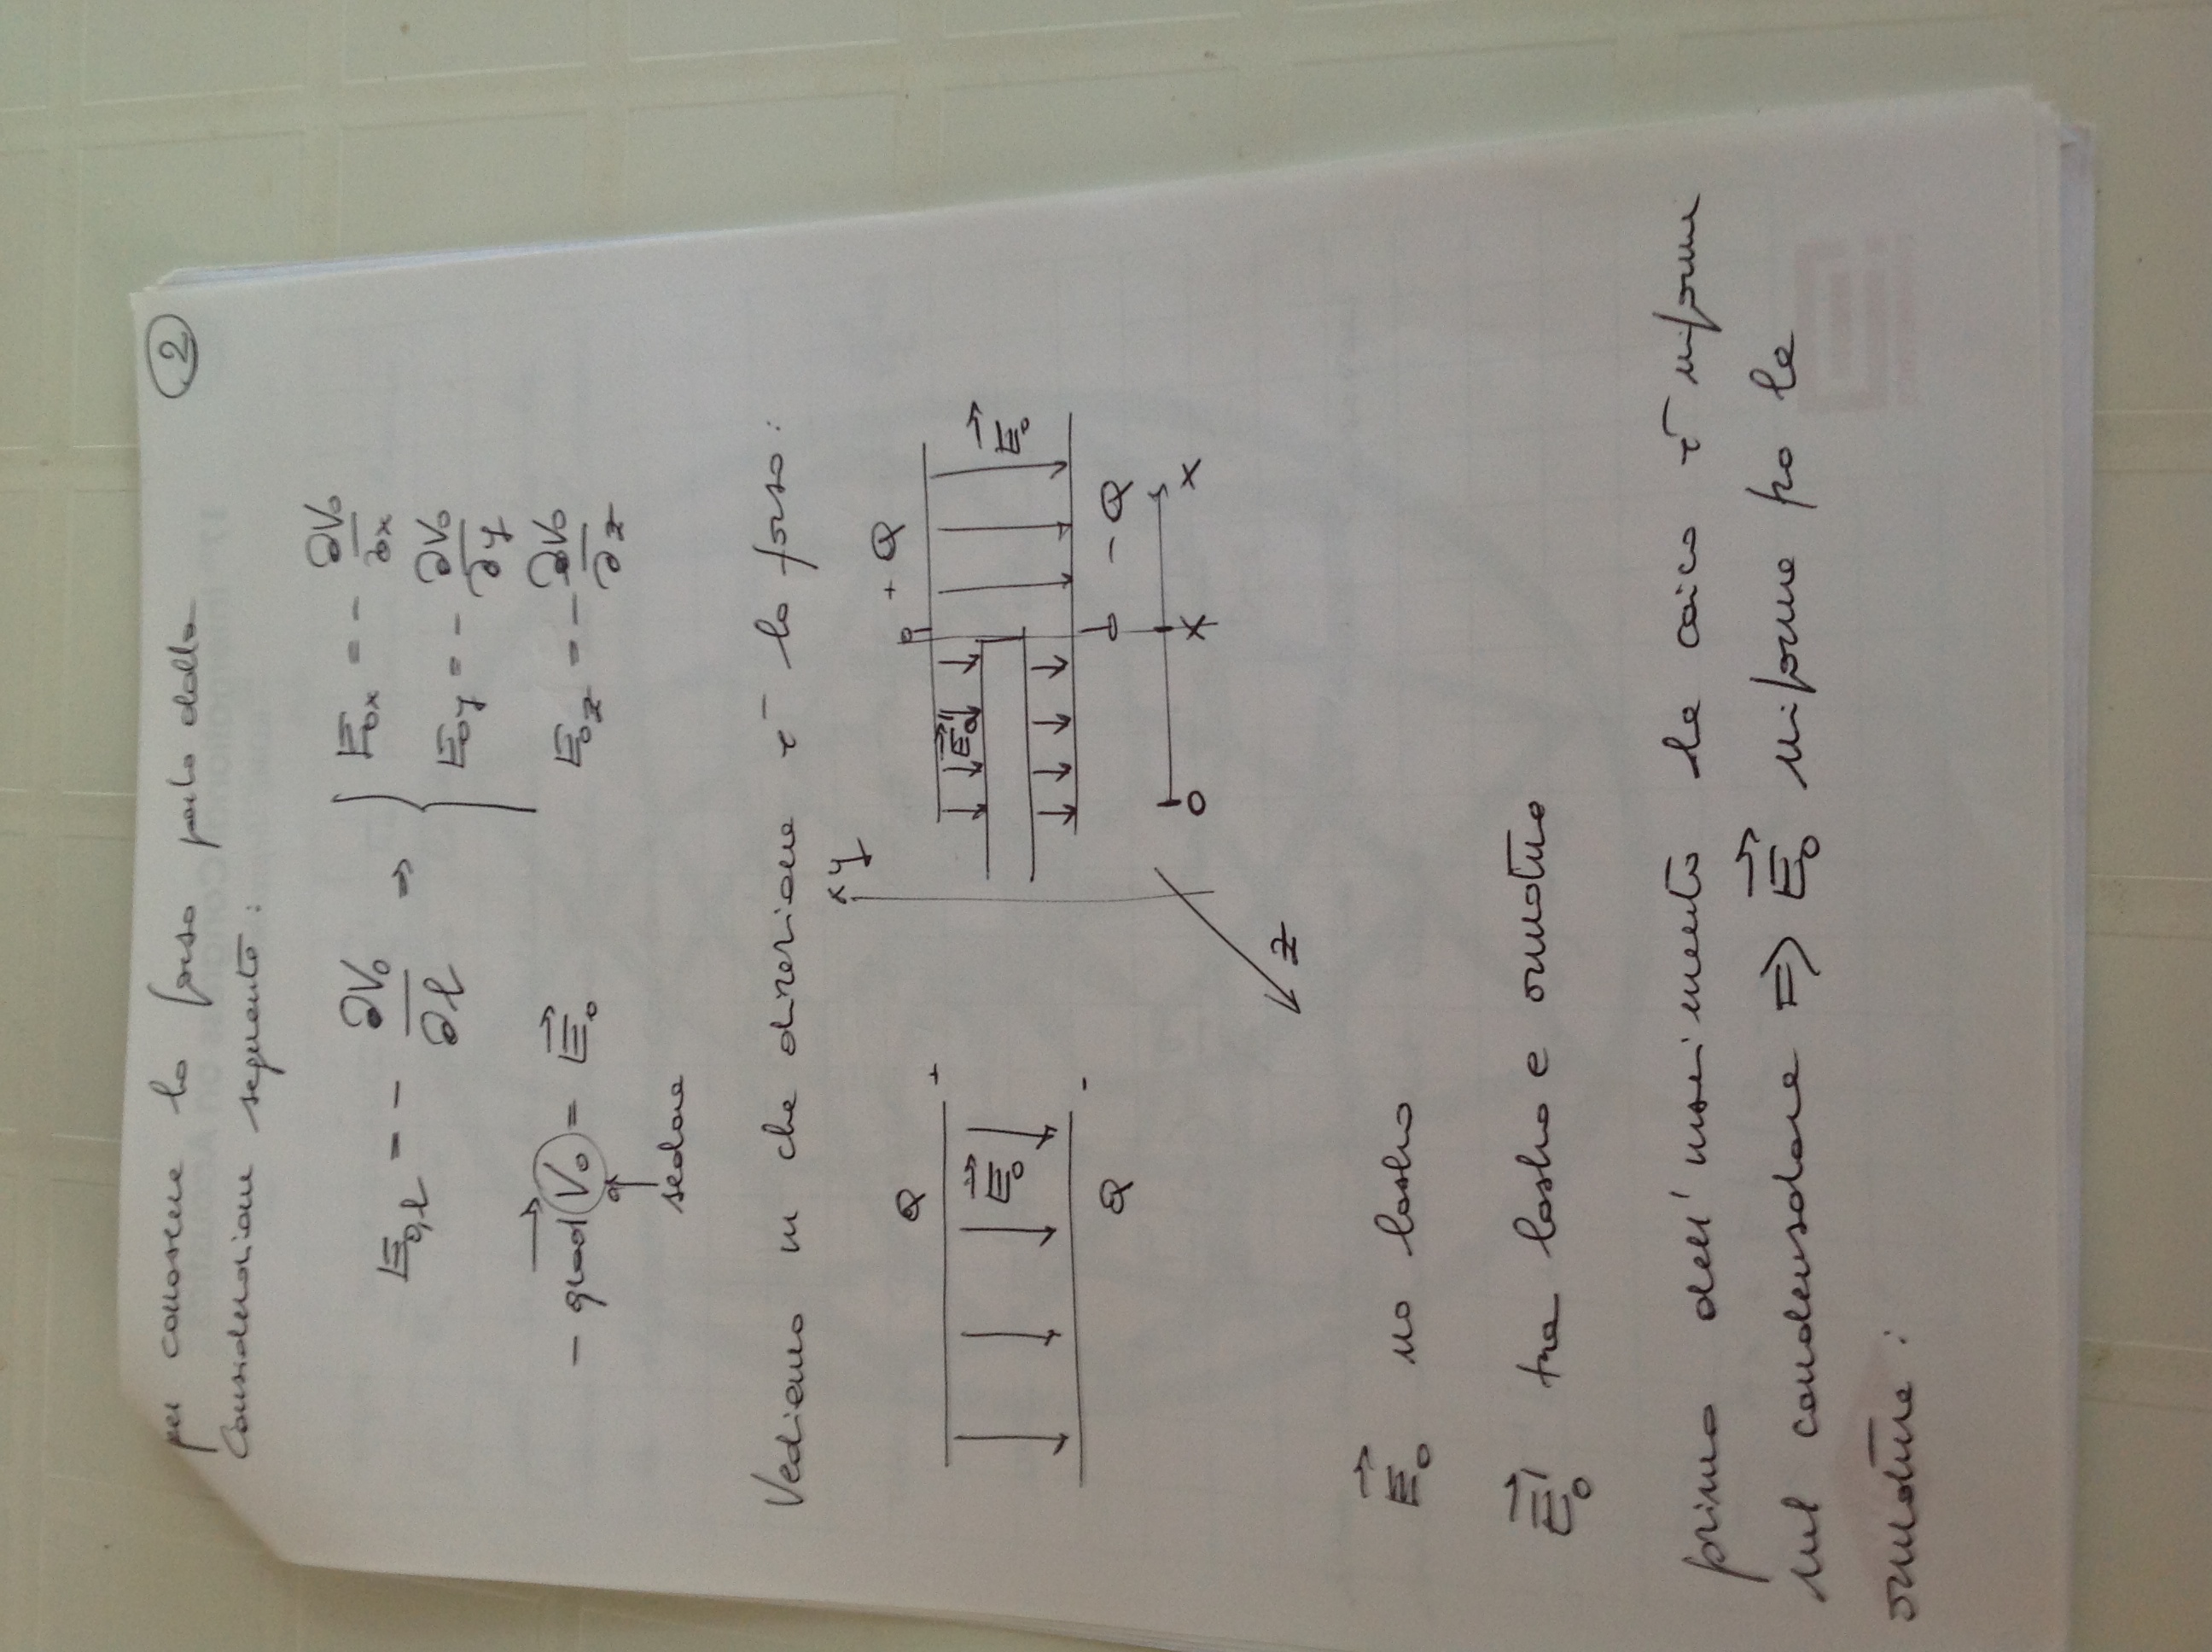 2
per conoscere la forza parto dalla
considerazione seguente:
E₀,ₗ = - ∂V₀/∂l ⇒ { E₀ₓ = - ∂V₀/∂x
E₀y = - ∂V₀/∂y
- grad V₀ = E₀
E₀z = - ∂V₀/∂z
scalare
Vediamo in che direzione è la forza:
y
Q +
E₀
Q -
+ Q
E₀'
E₀
- Q
0 x x
z
E₀ no lastra
E₀' tra lastra e armatura
prima dell'inserimento la carica è uniforme
nel condensatore ⇒ E₀ uniforme fra le
armature: